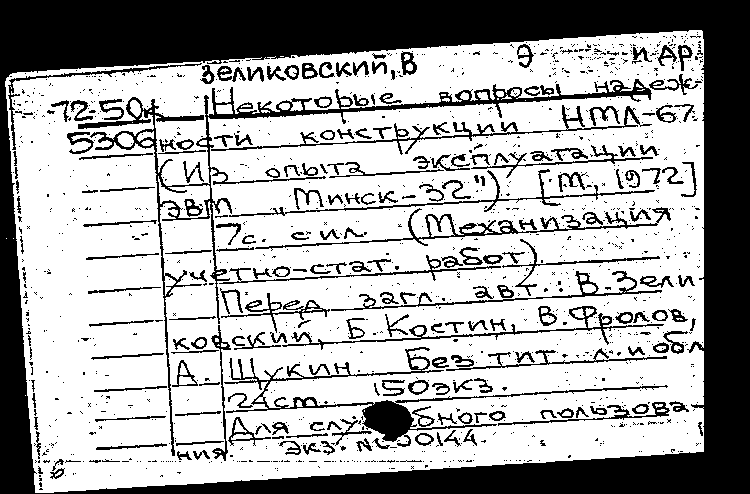 Зеликовский, В Э и др.
72-50к Некоторые вопросы надеж-
5306 ности конструкции НМЛ-67.
(Из опыта эксплуатации
ЭВМ „Минск-32"). [М., 1972]
7с. с ил. (Механизация
учетно-стат. работ)
Перед загл. авт.: В. Зели-
ковский, Б. Костин, В. Фролов,
А. Щукин. Без тит. л. и обл
24см. 150экз.
Для служебного пользова-
ния. Экз. №00144.
б